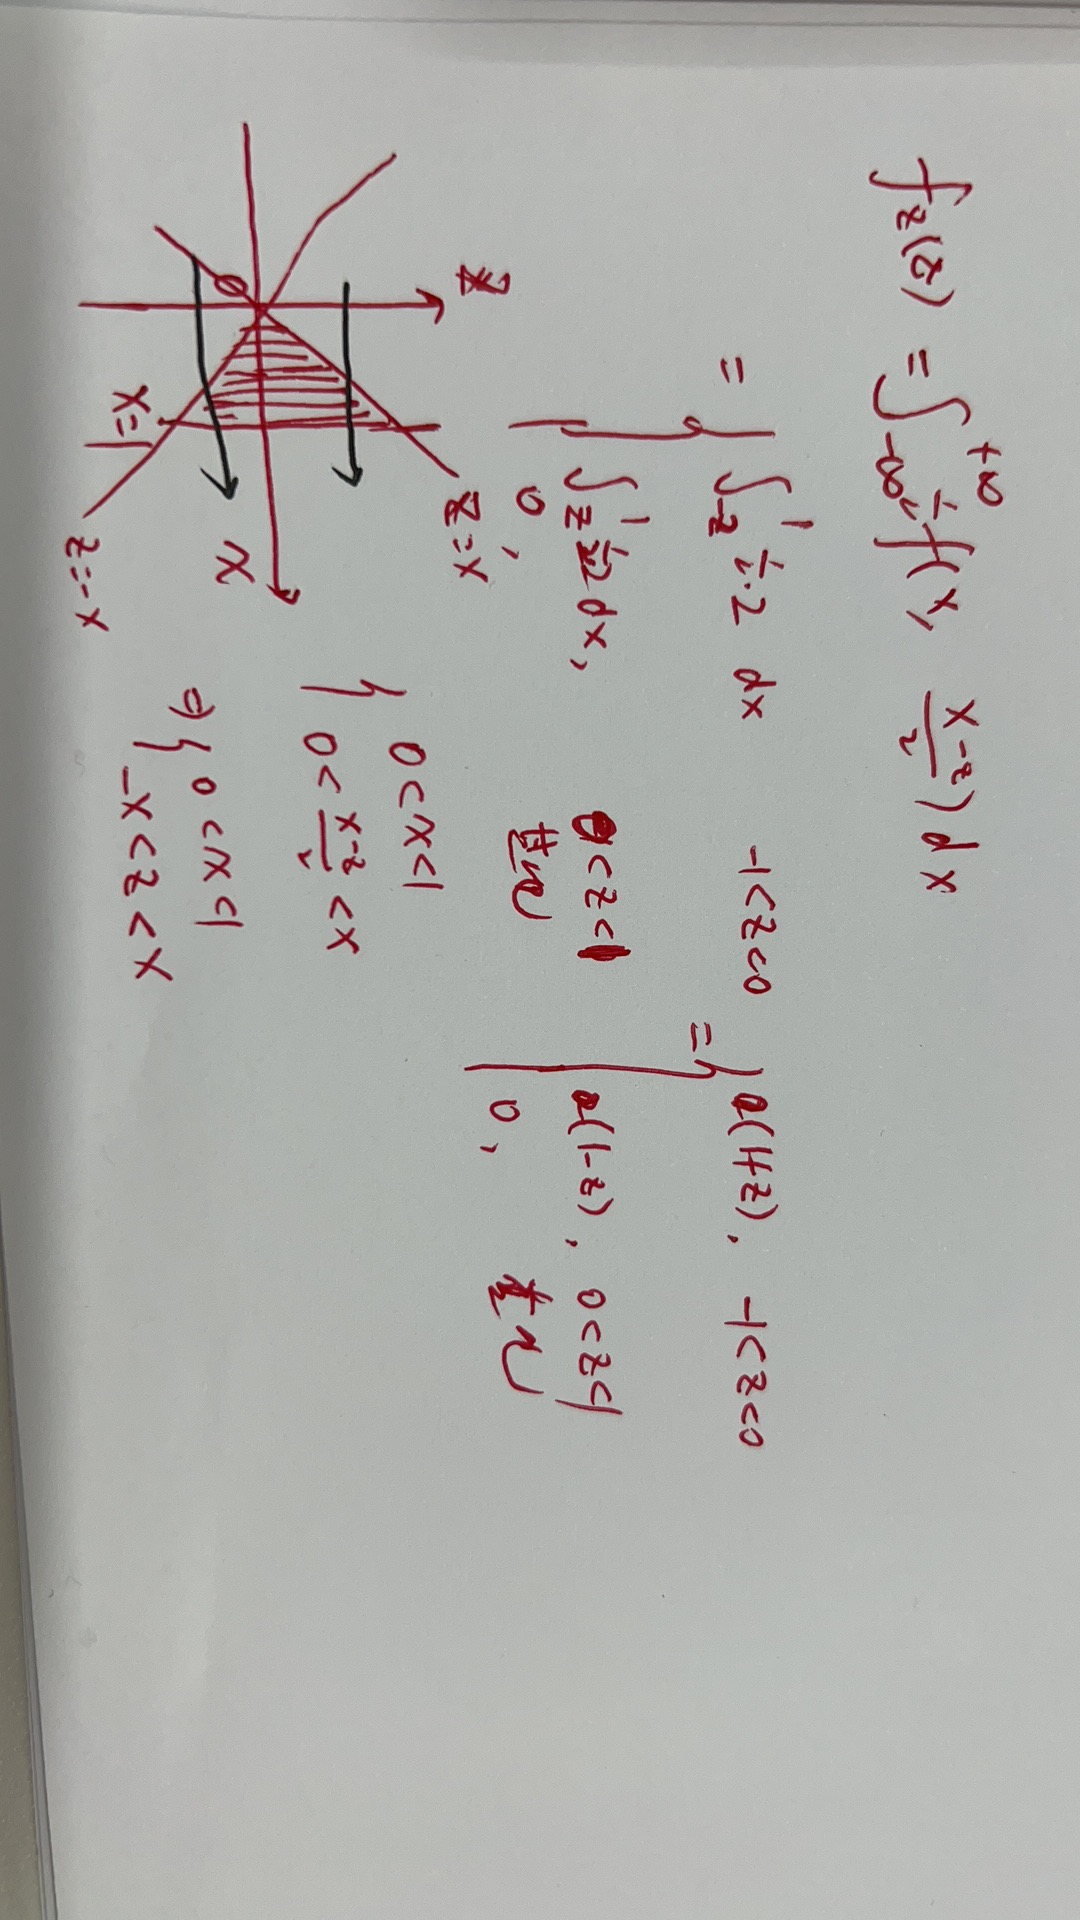 f_Z(z) = ∫_{-∞}^{+∞} ½ f(x, (x-z)/2) dx
= { ∫_{-z}^{1} ½·2 dx -1<z<0
∫_{z}^{1} ½·2 dx, 0<z<1
0, 其他
= { (1+z), -1<z<0
(1-z), 0<z<1
0, 其他
z
z=x
x
x=1
z=-x
{ 0<x<1
0< (x-z)/2 <x
⇒ { 0<x<1
-x<z<x